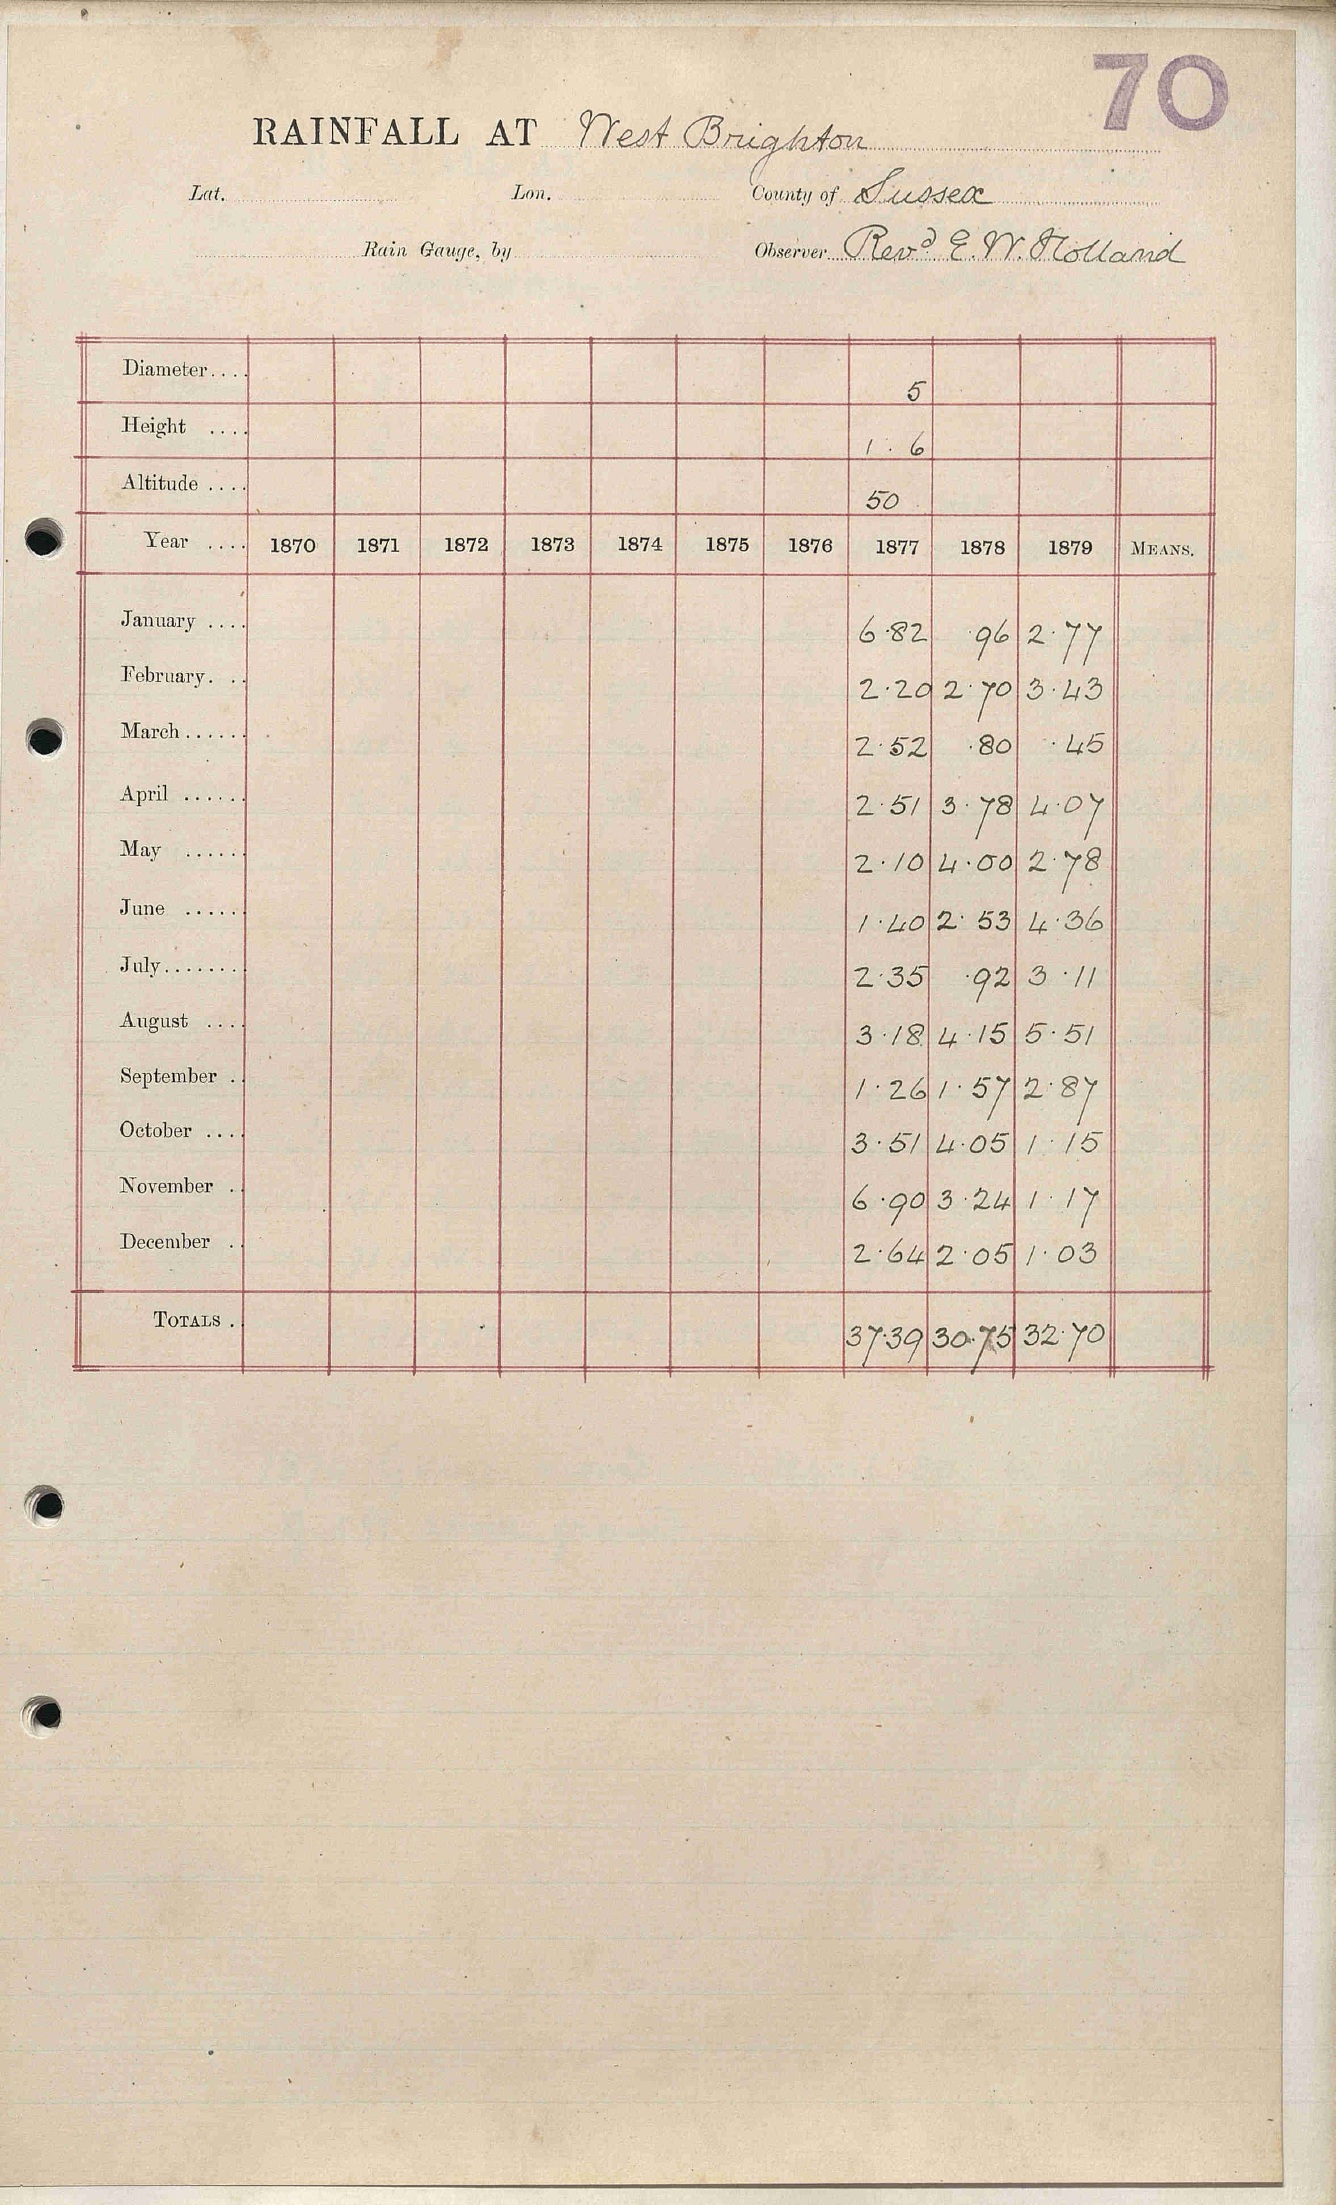 70
RAINFALL AT West Brighton
Lat. Lon. County of Sussex
Rain Gauge, by Observer Revd E. W. Holland
Diameter.... 5
Height .... 1 . 6
Altitude .... 50
Year .... 1870 1871 1872 1873 1874 1875 1876 1877 1878 1879 MEANS.
January .... 6.82 .96 2.77
February. .. 2.20 2.70 3.43
March...... 2.52 .80 .45
April ...... 2.51 3.78 4.07
May ...... 2.10 4.00 2.78
June ...... 1.40 2.53 4.36
July....... 2.35 .92 3.11
August .... 3.18 4.15 5.51
September . 1.26 1.57 2.87
October .... 3.51 4.05 1.15
November . 6.90 3.24 1.17
December . 2.64 2.05 1.03
TOTALS . 37.39 30.75 32.70